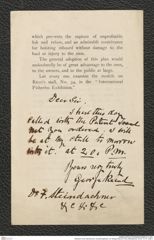 which prevents the capture of unprofitable
fish and refuse, and an admirable contrivance
for hoisting inboard without damage to the
haul or injury to the men.
The general adoption of this plan would
undoubtedly be of great advantage to the men,
to the owners, and to the public at large.
Let every one examine the models on
stall, No. 34, in the "International
Fisheries Exhibition."
Dear Sir.
I have this day
called with the Patent
not you ordered. I will
be at my stall to morrow
with it. at 2.0. P.m.
Yours very truly
Dr F. Steindachner